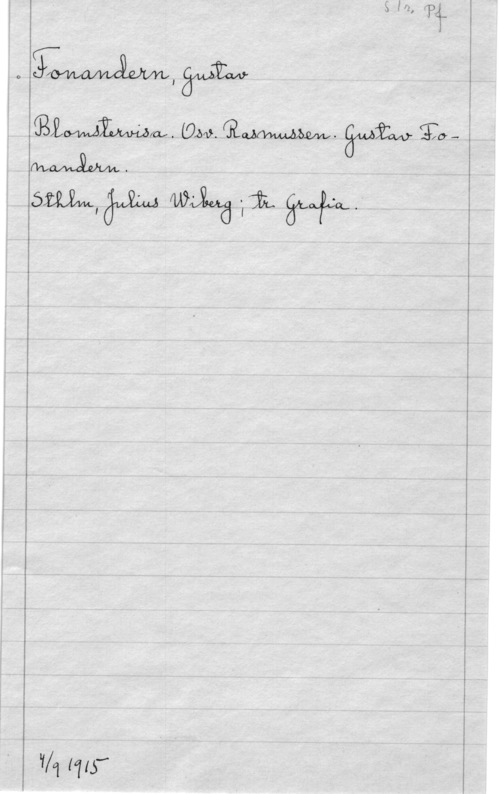 Fonandern, Gustav
Blomstervisa. Osv. Rasmussen. Gustav Fo-
nandern.
Sthlm, Julius Wiberg; tr. Grafia.
4/9 1915